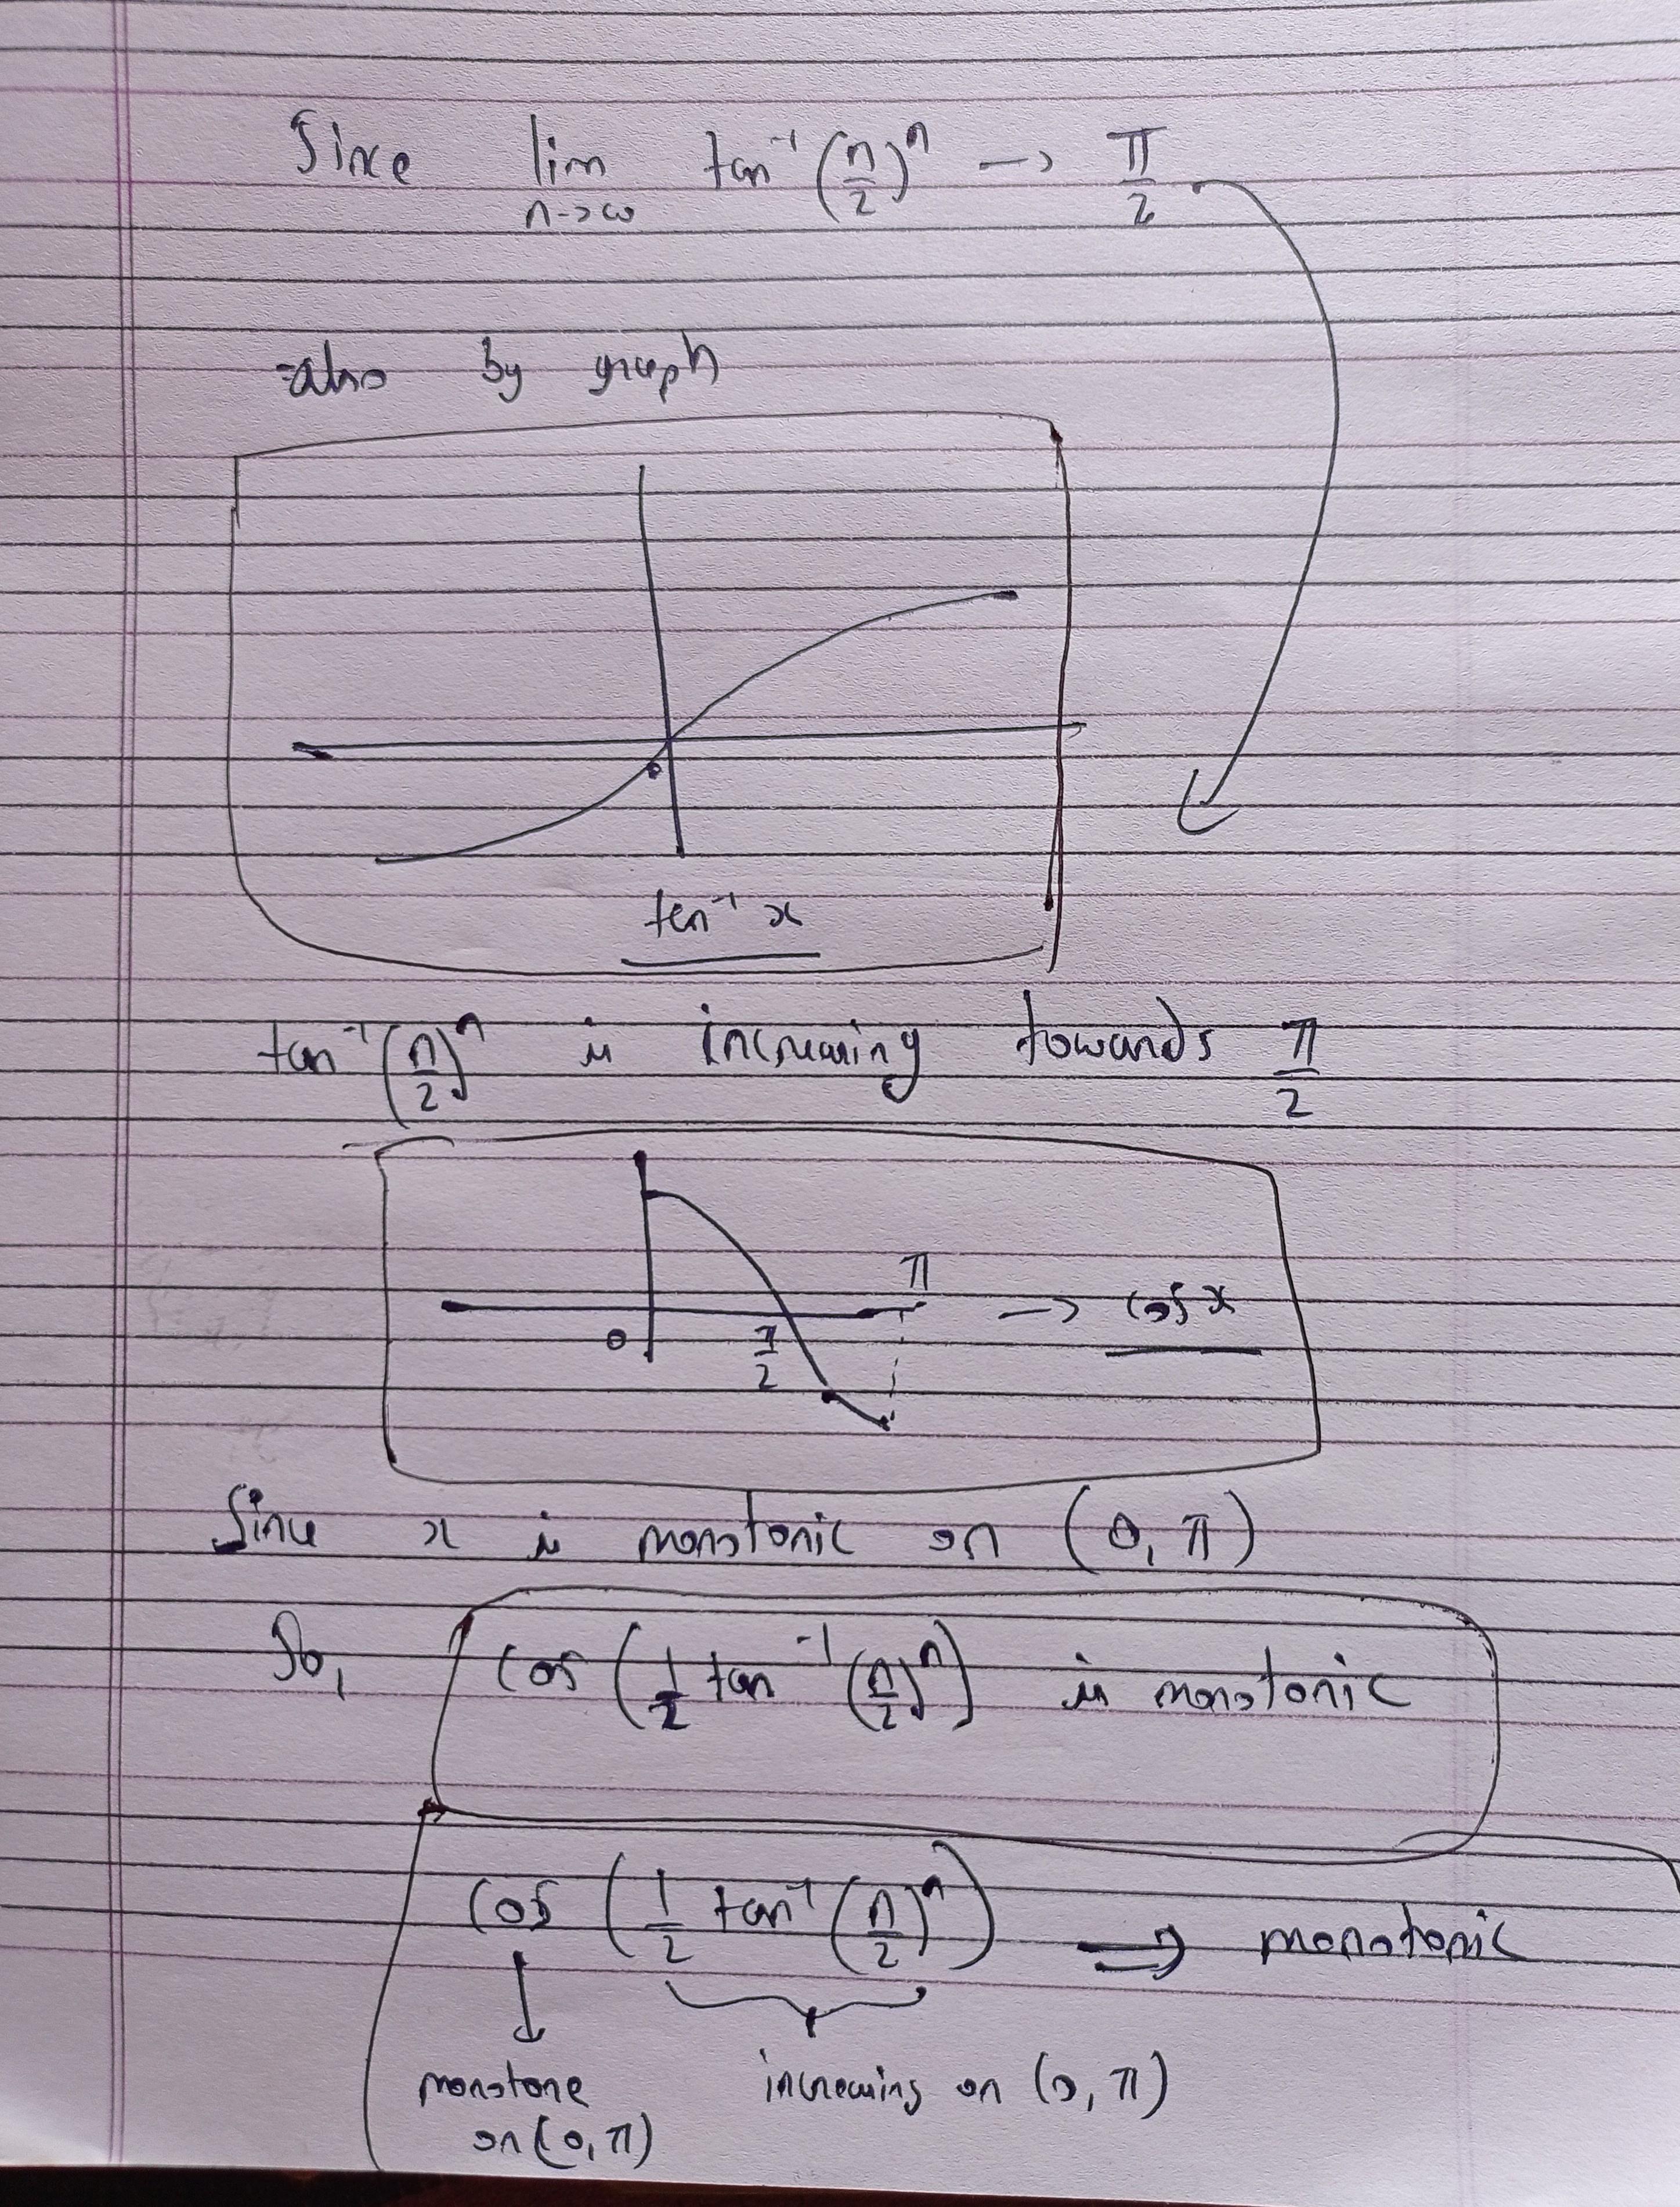 Since lim n->∞ tan⁻¹ (n/2)ⁿ -> π/2
also by graph
0
tan⁻¹ x
tan⁻¹ (n/2)ⁿ is increasing towards π/2
π
-> cos x
0 π/2
Since x is monotonic on (0, π)
So, cos (1/2 tan⁻¹ (n/2)ⁿ) is monotonic
cos (1/2 tan⁻¹ (n/2)ⁿ) => monotonic
monotone increasing on (0, π)
on (0, π)